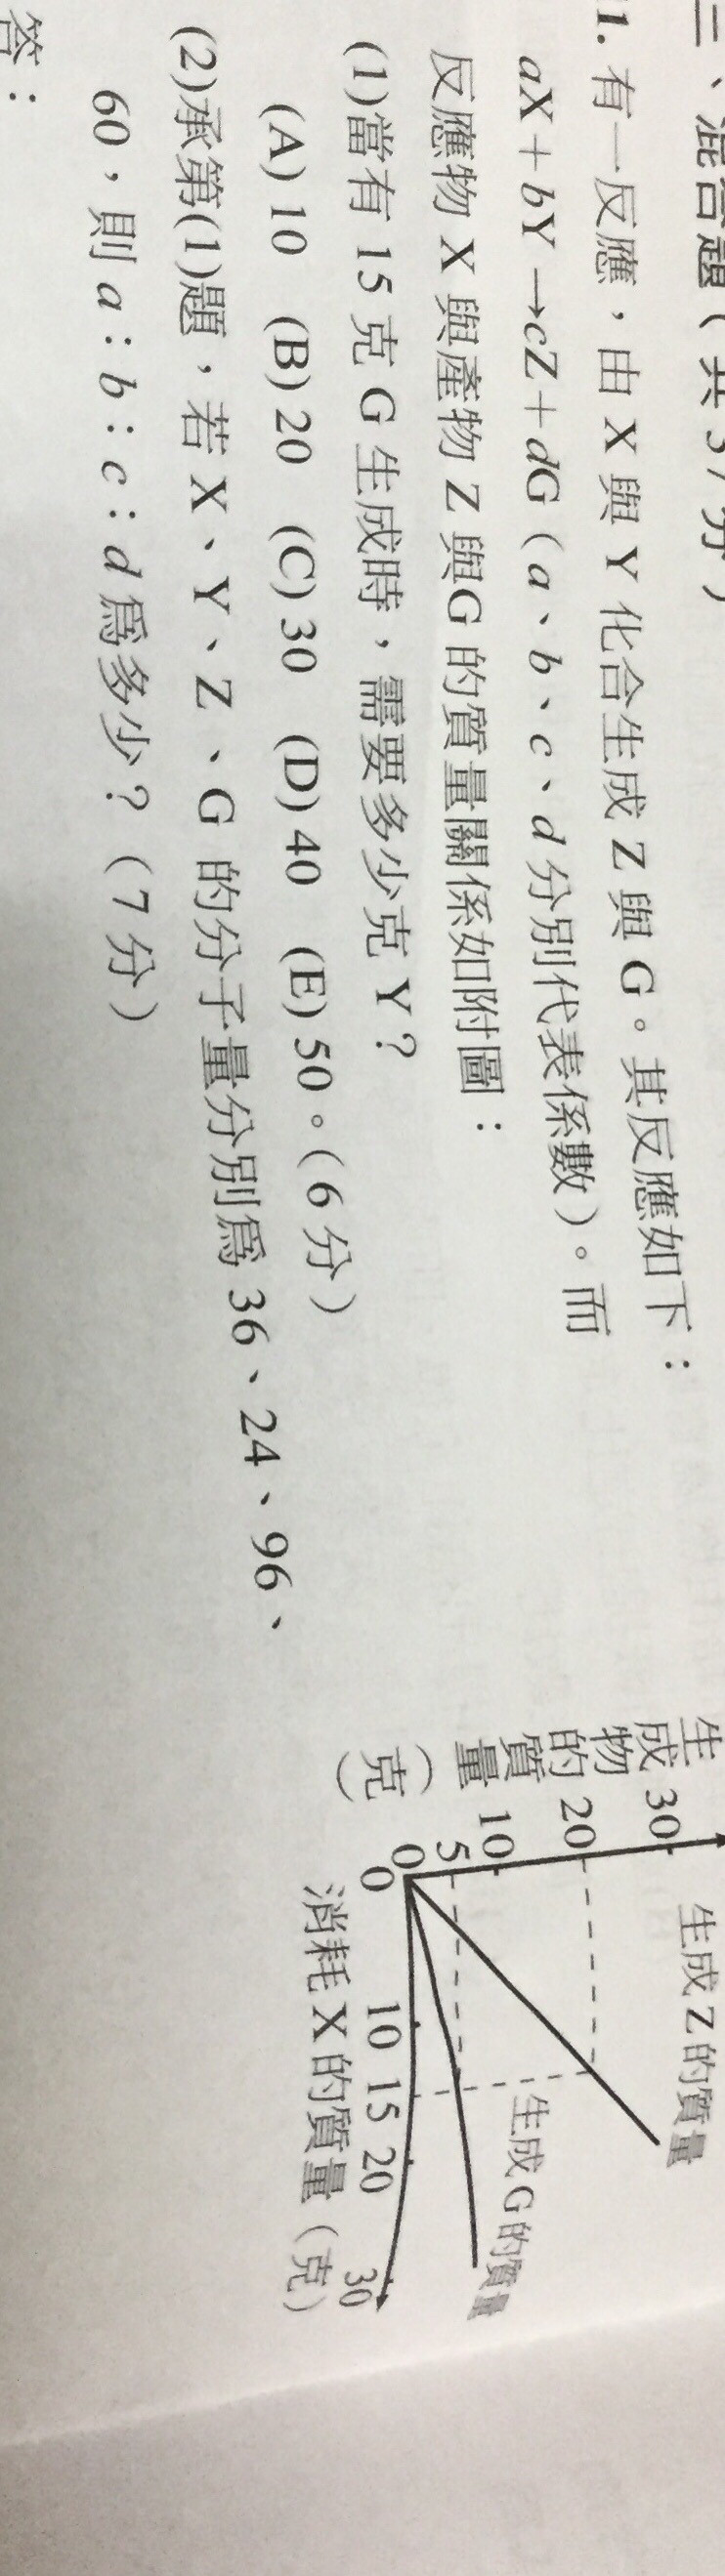 三、混合題（共 37 分）
1. 有一反應，由 X 與 Y 化合生成 Z 與 G。其反應如下：
aX + bY → cZ + dG（a、b、c、d 分別代表係數）。而
反應物 X 與產物 Z 與G 的質量關係如附圖：
(1)當有 15 克 G 生成時，需要多少克 Y？
(A) 10 (B) 20 (C) 30 (D) 40 (E) 50。（6 分）
(2)承第(1)題，若 X、Y、Z、G 的分子量分別爲 36、24、96、
60，則 a：b：c：d 爲多少？（7 分）
答：
生成物的質量（克）
30
20
10
5
0
0 10 15 20 30
生成 Z 的質量
生成 G 的質量
消耗 X 的質量（克）